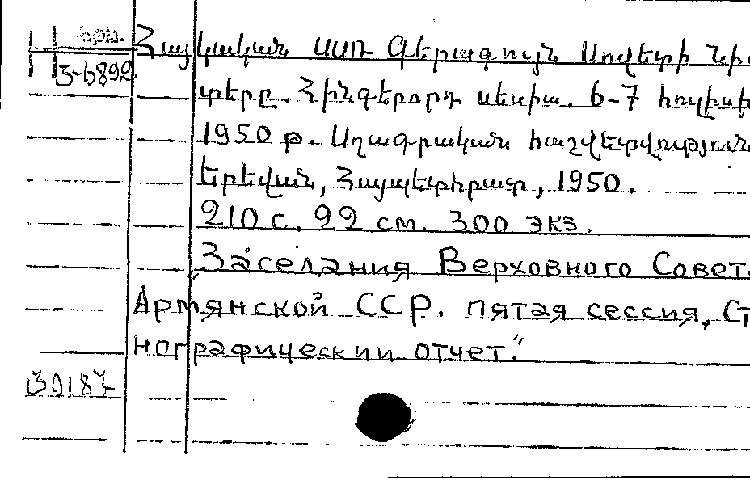 Հայկական ՍՍՌ Գերագույն Սովետի Նիս
տերը. Հինգերորդ սեսիա. 6-7 հուլիսի
1950 թ. Սղագրական հաշվետվություն
Երեվան, Հայպետհրատ, 1950.
210 с. 22 см. 300 экз.
Заседания Верховного Совет.
Армянской ССР. пятая сессия, Ст
нографический отчет."